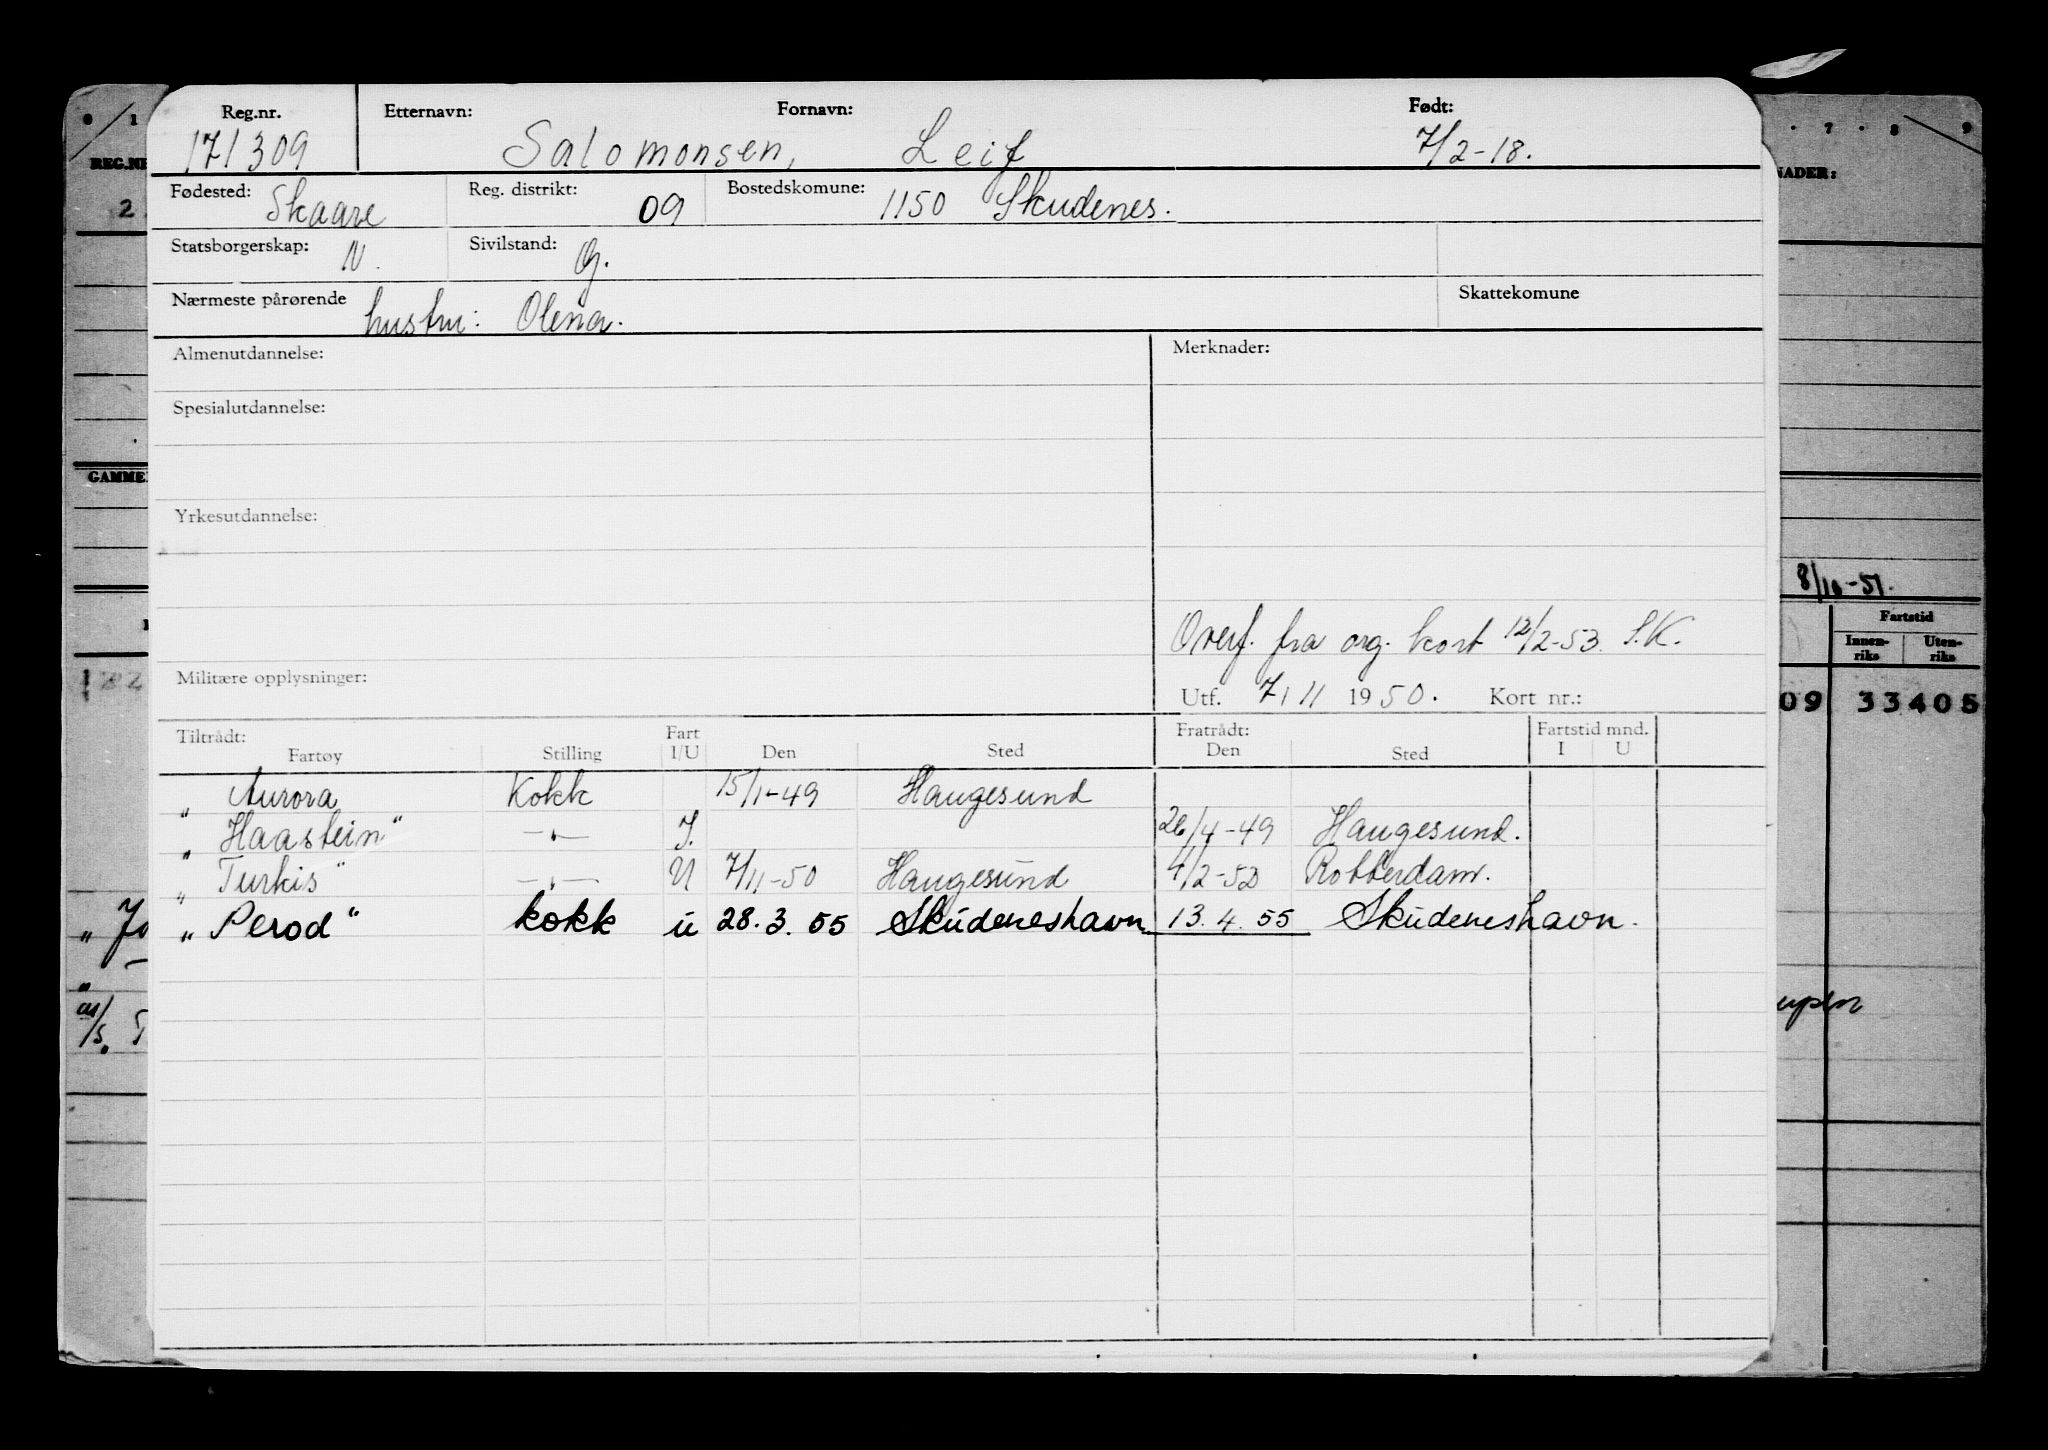 Reg.nr. Etternavn: Fornavn: Født:
171309 Salomonsen, Leif 7/2-18.
Fødested: Skaare Reg. distrikt: 09 Bostedskomune: 1150 Skudenes.
Statsborgerskap: N. Sivilstand: G.
Nærmeste pårørende hustru: Olena. Skattekomune
Almenutdannelse: Merknader:
Spesialutdannelse:
Yrkesutdannelse:
Overf. fra org. kort 12/2-53. S.K.
Militære opplysninger: Utf. 7/11 1950. Kort nr.:
Tiltrådt: Fart Fratrådt: Fartstid mnd.
Fartøy Stilling I/U Den Sted Den Sted I U
" Aurora Kokk 15/1-49 Haugesund
" Haastein" —"— I. 26/4-49 Haugesund.
" Turkis" —"— U 7/11-50 Haugesund 4/2-53 Rotterdam.
" Perod" kokk u 28.3.55 Skudeneshavn 13.4.55 Skudeneshavn.
0 1
REG.N
2
GAMME
7 8 9
NADER:
8/10-51.
Fartstid
Innen-riks Uten-riks
09 33405